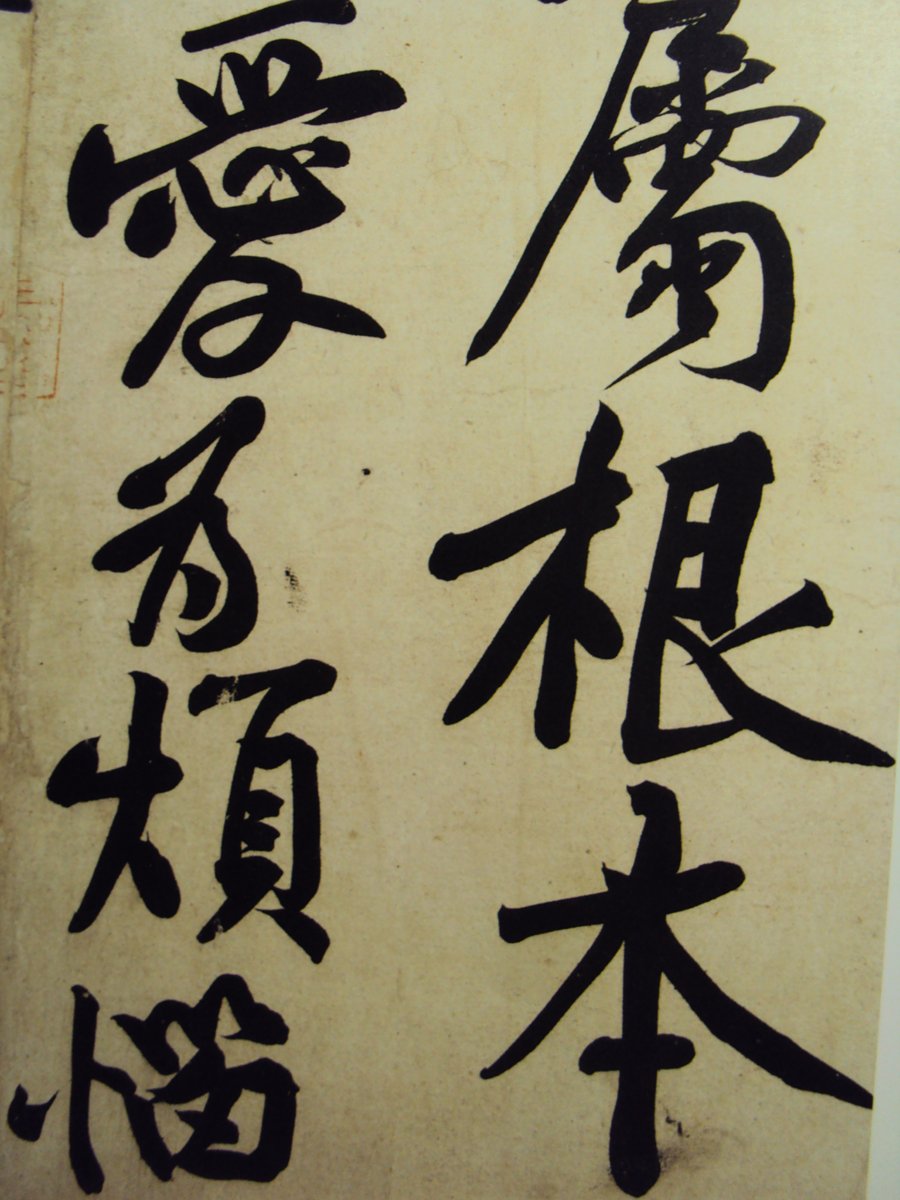 屬根本
愛為煩惱